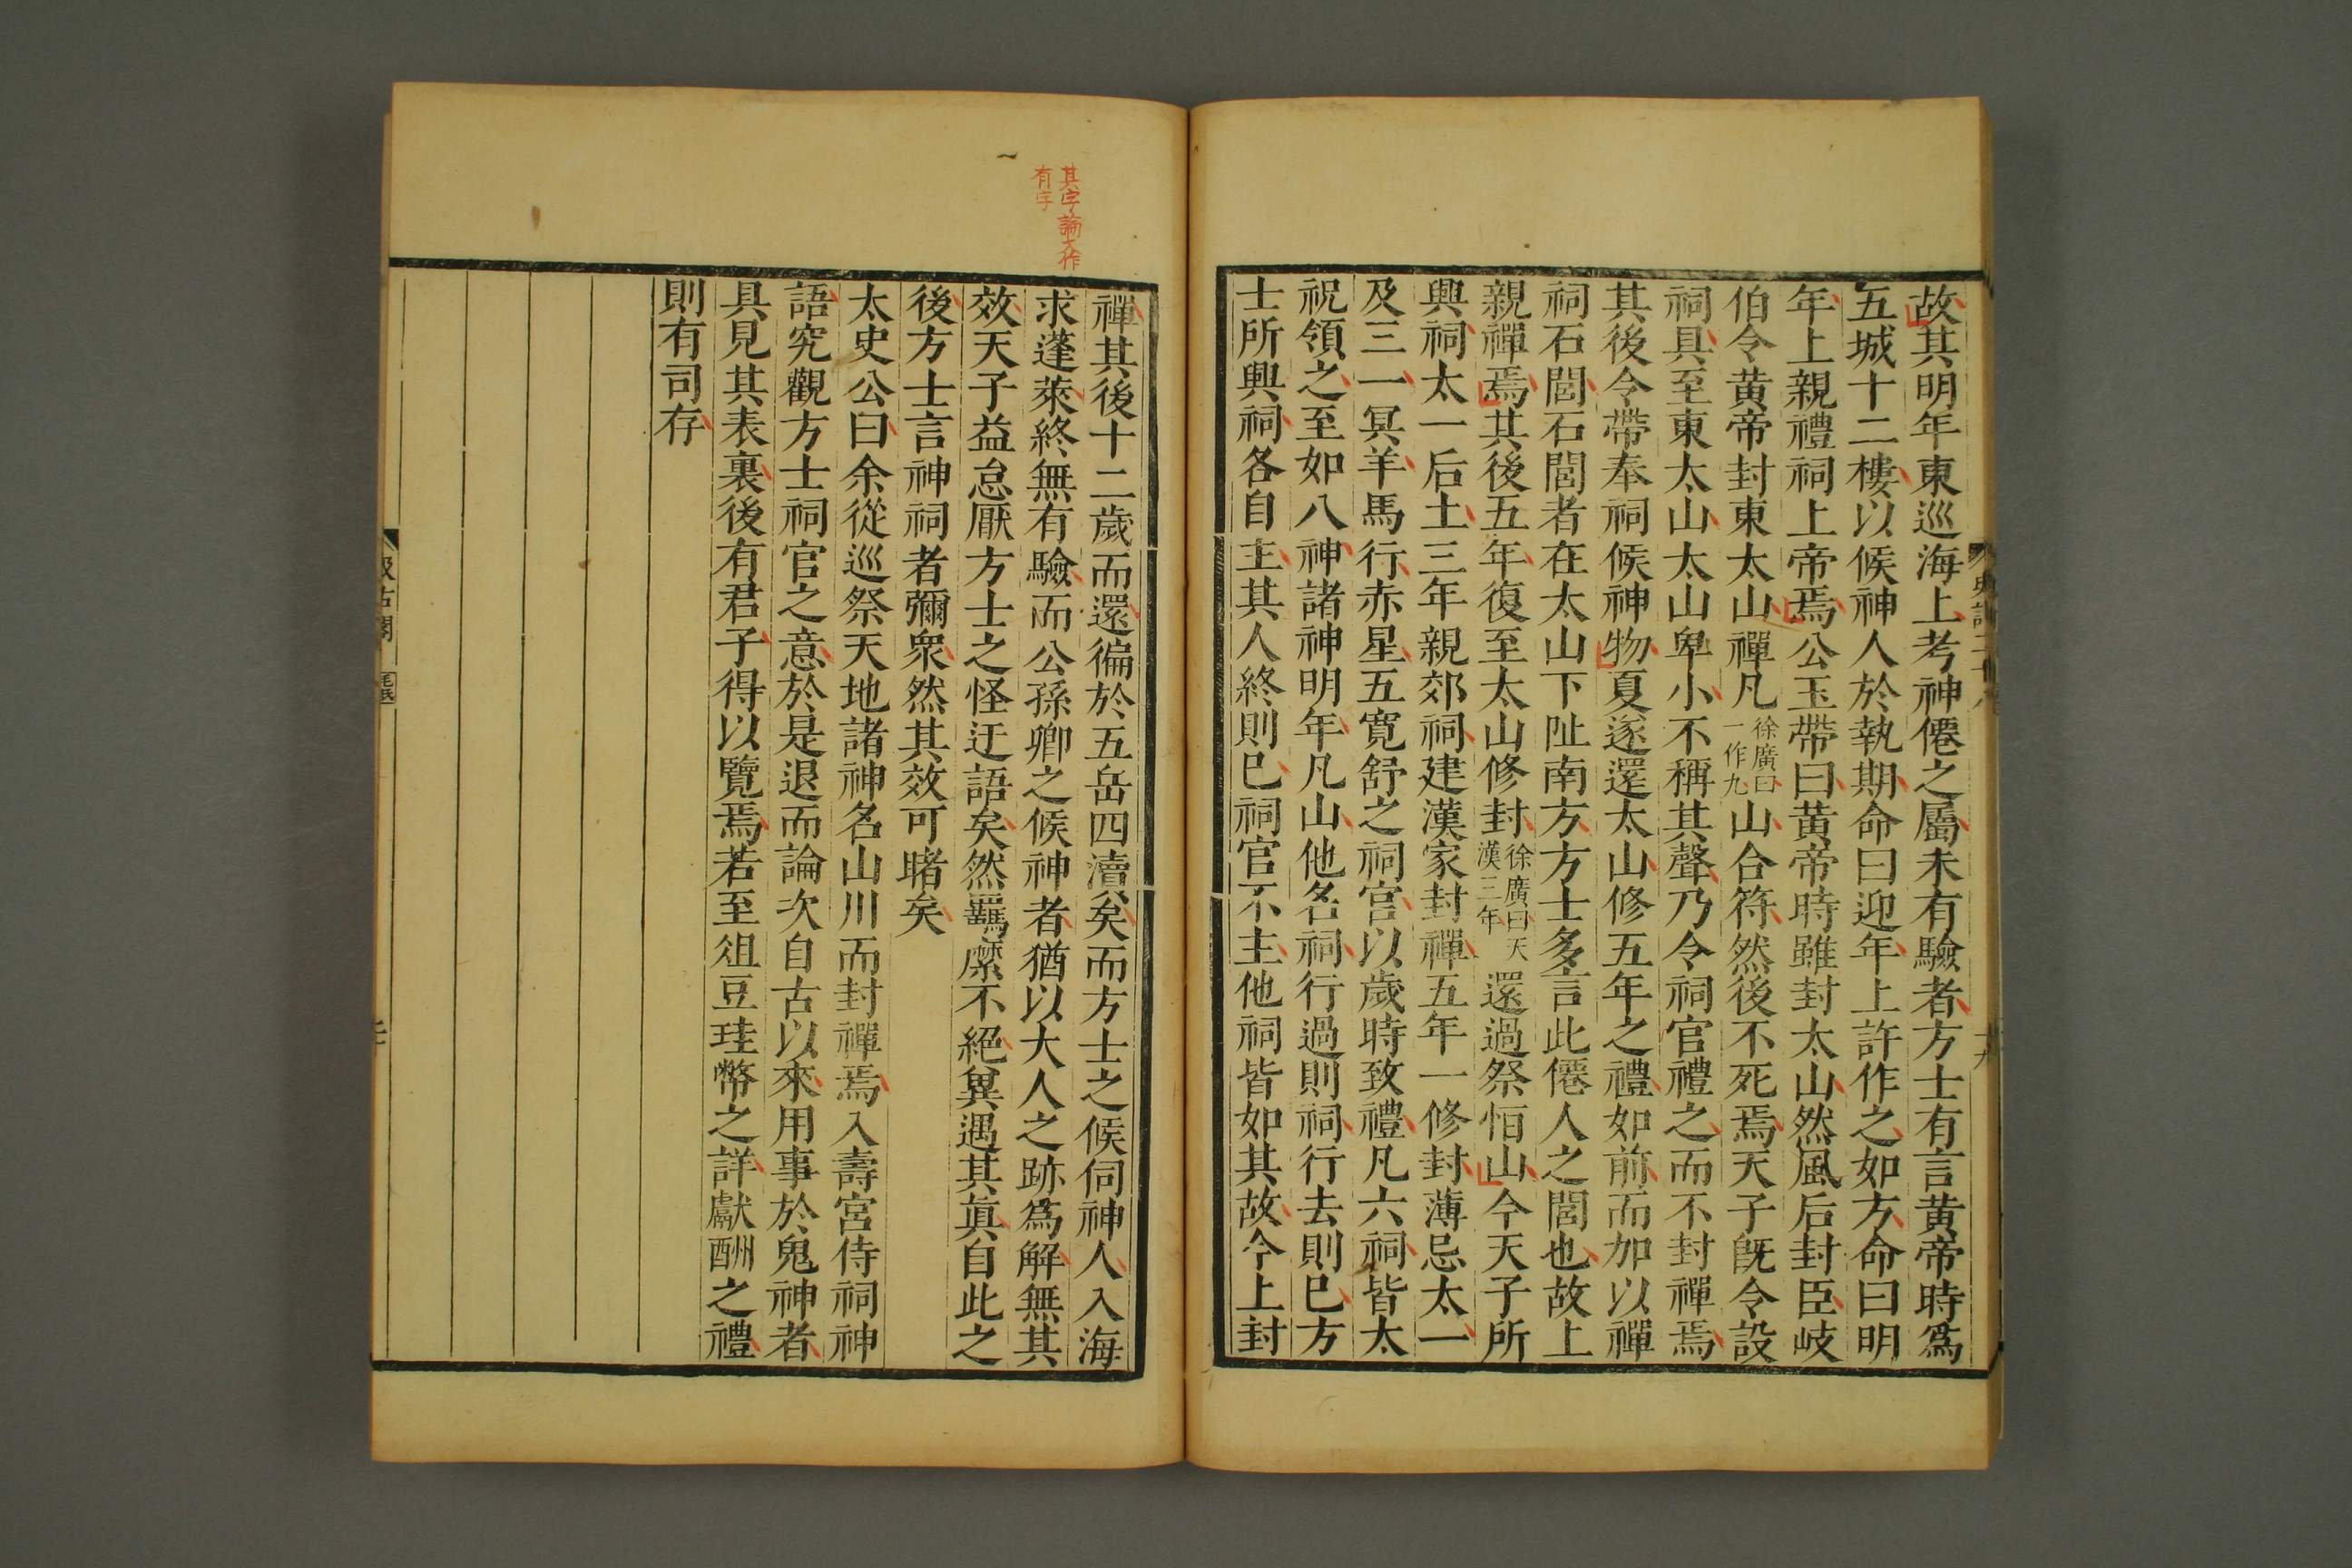 故其明年東巡海上考神僊之屬未有驗者方士有言黄帝時爲
五城十二樓以候神人於執期命曰迎年上許作之如方命曰明
年上親禮祠上帝焉公玉帶曰黄帝時雖封太山然風后封臣岐
伯令黄帝封東太山禪凡徐廣曰一作九山合符然後不死焉天子旣令設
祠具至東太山太山卑小不稱其聲乃令祠官禮之而不封禪焉
其後令帶奉祠候神物夏遂還太山修五年之禮如前而加以禪
祠石閭石閭者在太山下阯南方方士多言此僊人之閭也故上
親禪焉其後五年復至太山修封徐廣曰天漢三年還過祭恒山今天子所
興祠太一后土三年親郊祠建漢家封禪五年一修封薄忌太一
及三一冥羊馬行赤星五寛舒之祠宫以歲時致禮凡六祠皆太
祝領之至如八神諸神明年凡山他名祠行過則祠行去則巳方
士所興祠各自主其人終則巳祠官不主他祠皆如其故今上封
禪其後十二歲而還徧於五岳四瀆矣而方士之候伺神人入海
求蓬萊終無有驗而公孫卿之候神者猶以大人之跡爲解無其
效天子益怠厭方士之怪迂語矣然羈縻不絕兾遇其眞自此之
後方士言神祠者彌衆然其效可睹矣
太史公曰余從巡祭天地諸神名山川而封禪焉入壽宫侍祠神
語究觀方士祠官之意於是退而論次自古以來用事於鬼神者
具見其表裏後有君子得以覽焉若至俎豆珪幣之詳獻酬之禮
則有司存
其字論大作
有字